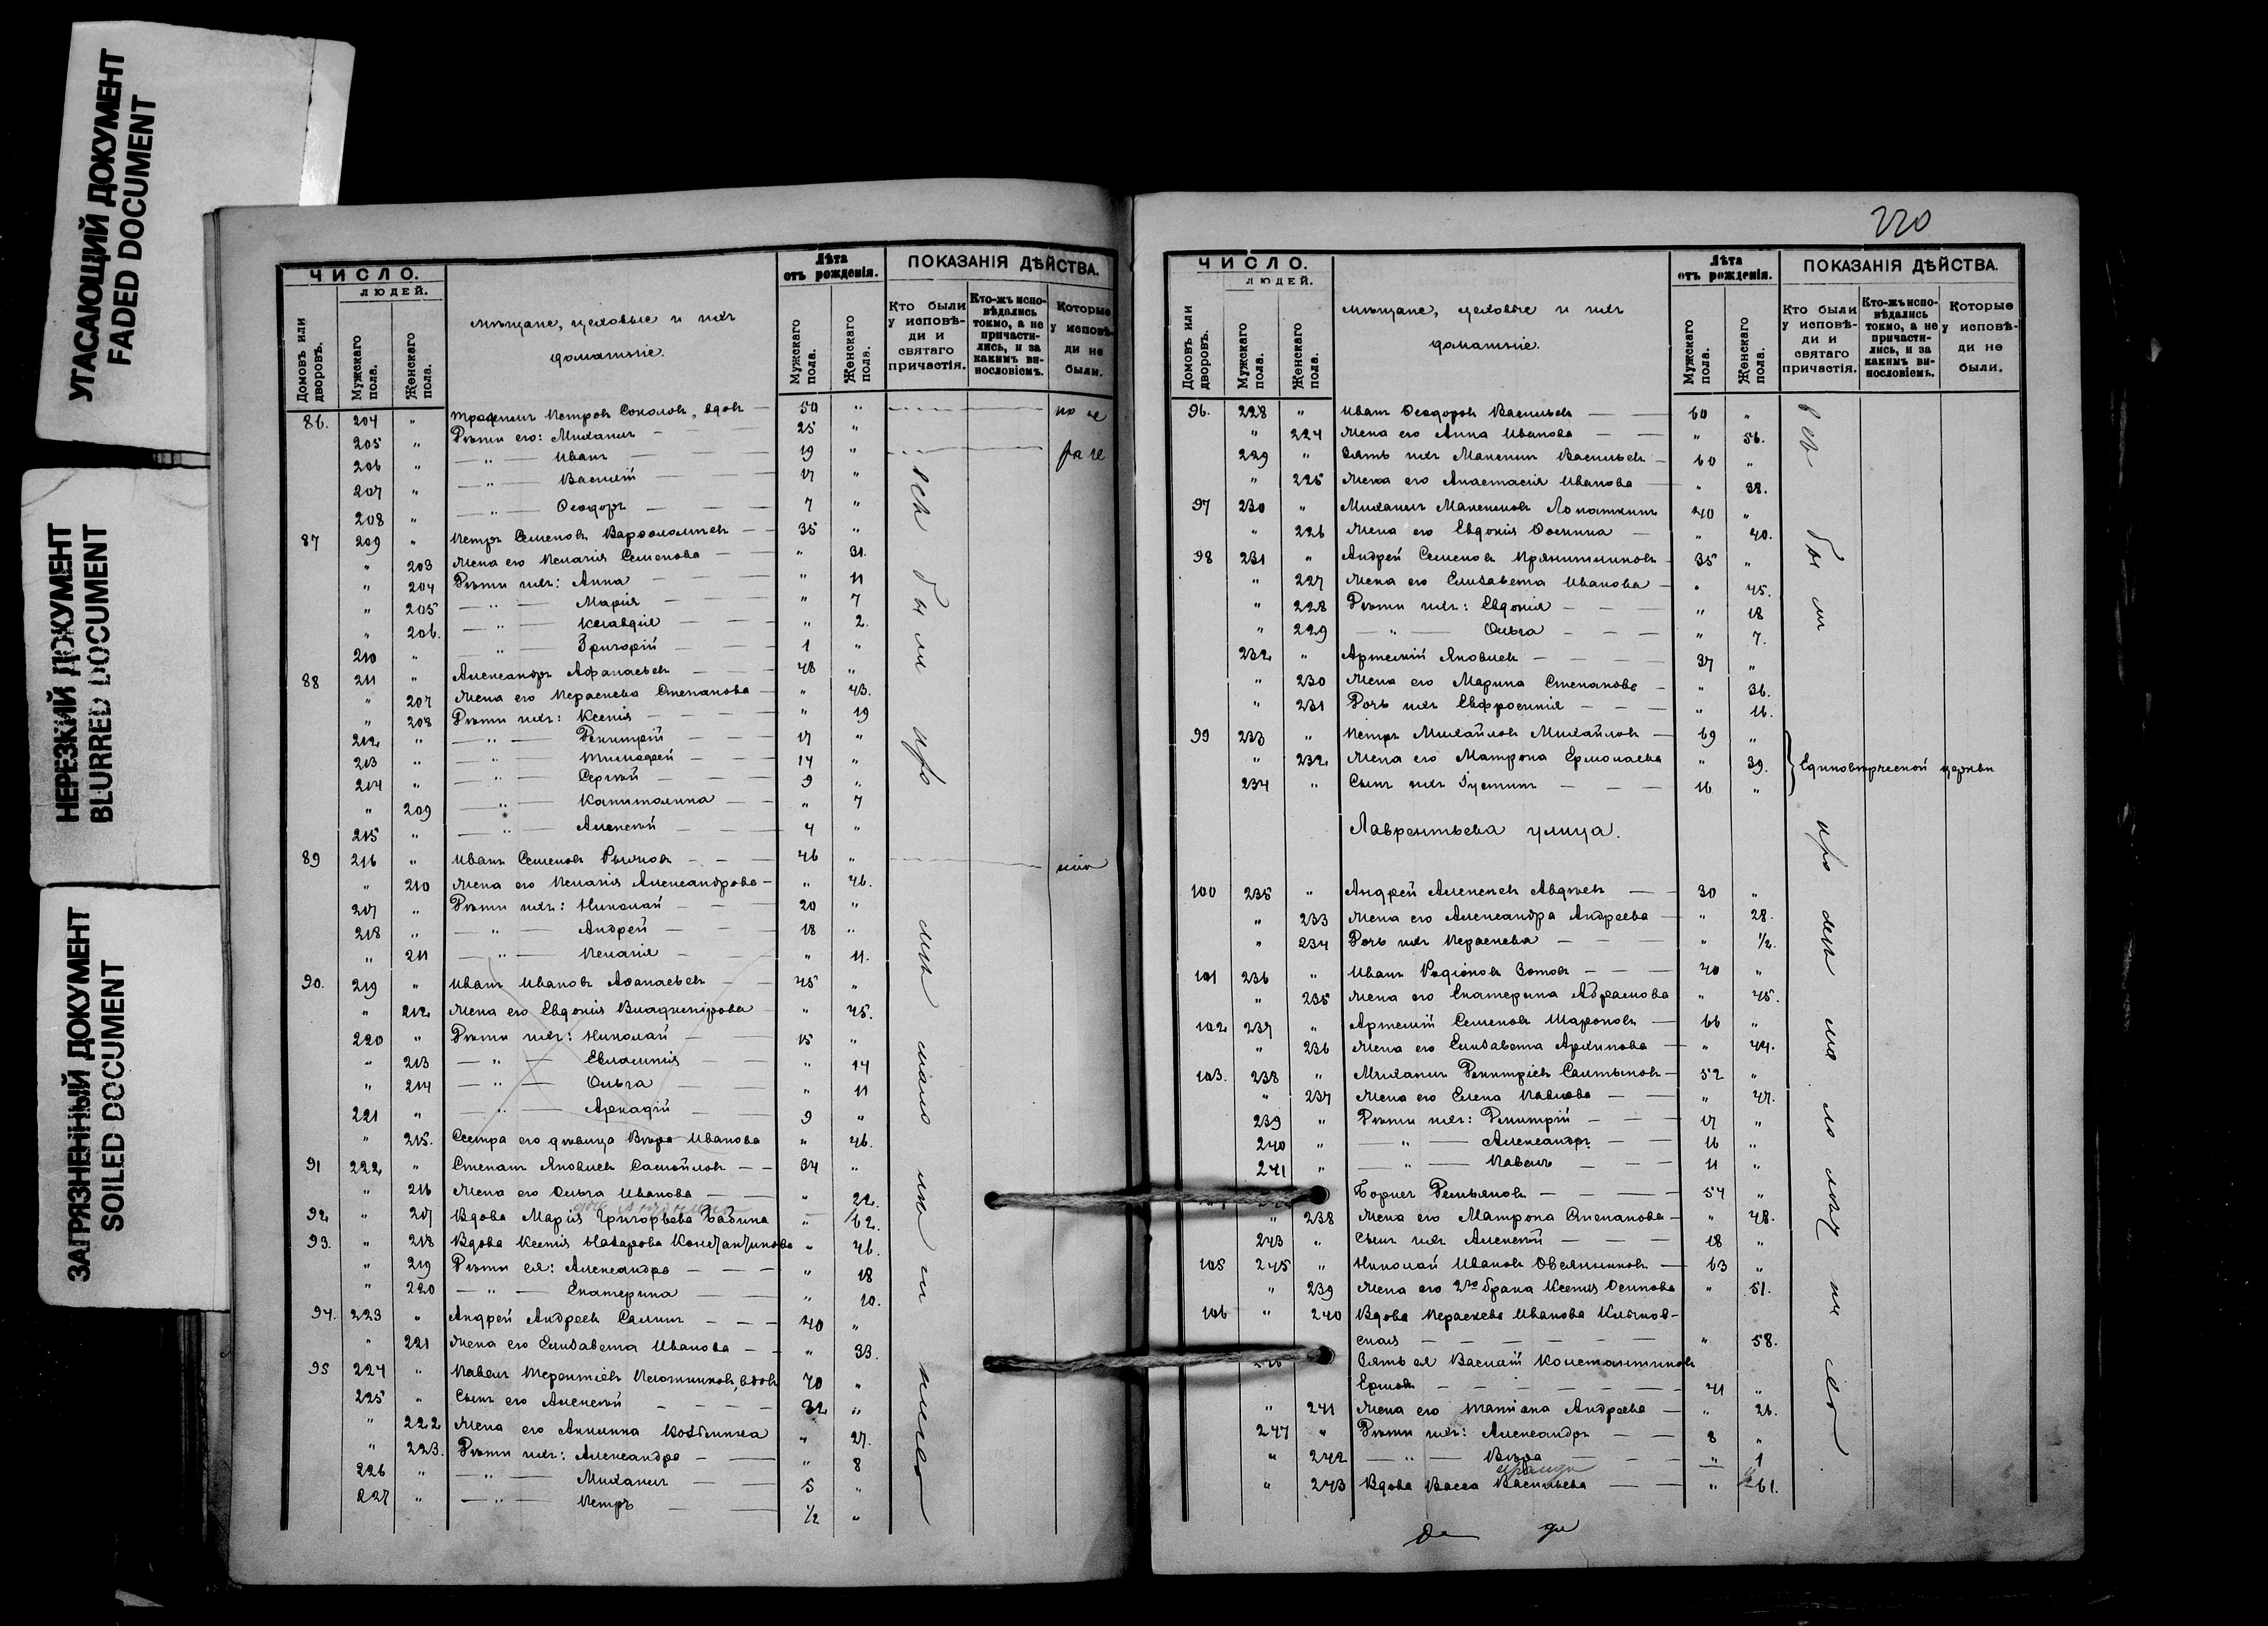 УГАСАЮЩИЙ ДОКУМЕНТ
FADED DOCUMENT
НЕРЕЗКИЙ ДОКУМЕНТ
BLURRED DOCUMENT
ЗАГРЯЗНЕННЫЙ ДОКУМЕНТ
SOILED DOCUMENT
ЧИСЛО.
людей.
Домовъ или дворовъ.
Мужскаго пола.
Женскаго пола.
мѣщане, цеховые и ихъ
домашніе.
Лѣта
отъ рожденія.
Мужскаго пола.
Женскаго пола.
ПОКАЗАНІЯ ДѢЙСТВА.
Кто были у исповѣди и святаго причастія.
Кто-жъ исповѣдались токмо, а не причастились, и за какимъ винословіемъ.
Которые у исповѣди не были.
86. 204 " Трофимъ Петровъ Соколовъ, вдовъ — 50 "
205 " Дѣти его: Михаилъ — 25 "
206 " — " — Иванъ — 19 "
207 " — " — Василій — 17 "
208 " — " — Ѳеодоръ — 7 "
87 209 " Петръ Семеновъ Варѳоломѣевъ — 35 "
" 203 Жена его Пелагія Семенова — " 31.
" 204 Дѣти ихъ: Анна — " 11
" 205 — " — Марія — " 7
" 206. — " — Клавдія — " 2.
210 " — " — Григорій — 1 "
88 211 " Александръ Аѳанасьевъ — 48 "
" 207 Жена его Параскева Степанова — " 43.
" 208 Дѣти ихъ: Ксенія — " 19
212 " — " — Димитрій — 17 "
213 " — " — Тимоѳей — 14 "
214 " — " — Сергѣй — 9 "
" 209 — " — Капитолина — " 7
215 " — " — Алексѣй — 4 "
89 216 " Иванъ Семеновъ Рычковъ — 46 "
" 210 Жена его Пелагія Александрова — " 46.
217 " Дѣти ихъ: Николай — 20 "
218 " — " — Андрей — 18 "
" 211 — " — Пелагія — " 11.
90. 219 " Иванъ Ивановъ Аѳанасьевъ — 45 "
" 212 Жена его Евдокія Владимірова " 45.
220 " Дѣти ихъ: Николай — 15 "
" 213 — " — Евлампія — " 14
" 214 — " — Ольга — " 11
221 " — " — Аркадій — 9 "
" 215. Сестра его дѣвица Вѣра Иванова " 46.
91 222 " Степанъ Яковлевъ Самойловъ — 34 "
" 216 Жена его Ольга Иванова — " 22.
92 " 217 Вдова Марія Григорьева Бабина " 62.
93. " 218 Вдова Ксенія Назарова Константинова " 46.
" 219 Дѣти ея: Александра — " 18
" 220 — " — Екатерина — " 10.
94. 223 " Андрей Андреевъ Салинъ — 40 "
" 221 Жена его Елизавета Иванова — " 33.
95 224 " Павелъ Терентіевъ Плотниковъ, вдовъ 70 "
225 " Сынъ его Алексѣй — 32 "
" 222 Жена его Акилина Козьмина " 27.
" 223. Дѣти ихъ: Александра — " 8
226 " — " — Михаилъ — 5 "
227 " — " — Петръ — 1/2 "
220
ЧИСЛО.
людей.
Домовъ или дворовъ.
Мужскаго пола.
Женскаго пола.
мѣщане, цеховые и ихъ
домашніе.
Лѣта
отъ рожденія.
Мужскаго пола.
Женскаго пола.
ПОКАЗАНІЯ ДѢЙСТВА.
Кто были у исповѣди и святаго причастія.
Кто-жъ исповѣдались токмо, а не причастились, и за какимъ винословіемъ.
Которые у исповѣди не были.
96. 228 " Иванъ Ѳеодоровъ Васильевъ — 60 "
" 224 Жена его Анна Иванова — " 56.
229 " Зять ихъ Максимъ Васильевъ — 60 "
" 225 Жена его Анастасія Иванова — " 38.
97 230 " Михаилъ Максимовъ Лопаткинъ 40 "
" 226 Жена его Евдокія Ѳомина — " 40.
98 231 " Андрей Семеновъ Прянишниковъ — 35 "
" 227 Жена его Елизавета Иванова — " 45.
" 228 Дѣти ихъ: Евдокія — " 18
" 229 — " — Ольга — " 7.
232 " Артемій Яковлевъ — 37 "
" 230 Жена его Марина Степанова — " 36.
" 231 Дочь ихъ Евфросинія — " 16.
99 233 " Петръ Михайловъ Михайловъ — 69 "
" 232 Жена его Матрона Ермолаева " 39. Единовѣрческой церкви
234 " Сынъ ихъ Іустинъ — 16 "
Лаврентьева улица.
100 235 " Андрей Алексеевъ Авдѣевъ — 30 "
" 233 Жена его Александра Андреева — " 28.
" 234 Дочь ихъ Параскева — " 1/2.
101 236 " Иванъ Родіоновъ Зотовъ — 40 "
" 235 Жена его Екатерина Абрамова " 45.
102 237 " Артемій Семеновъ Шароновъ — 66 "
" 236 Жена его Елизавета Архипова — " 44.
103. 238 " Михаилъ Димитріевъ Салтыковъ — 52 "
" 237 Жена его Елена Павлова — " 47.
239 " Дѣти ихъ: Димитрій — 17 "
240 " — " — Александръ — 16 "
241 " — " — Павелъ — 11 "
Борисъ Демьяновъ — 54 "
" 238 Жена его Матрона Степанова — " 48.
243 " Сынъ ихъ Алексѣй — 18 "
105 245 " Николай Ивановъ Овсянниковъ — 63 "
" 239 Жена его 2го брака Ксенія Осипова " 51.
106 " 240 Вдова Параскева Иванова Клычков-
ская — " 58.
Зять ея Василій Константиновъ
Ершовъ — 41 "
" 241 Жена его Татіана Андреева — " 26.
247 " Дѣти ихъ: Александръ — 8 "
" 242 — " — Вѣра — " 1
" 243 Вдова Васса Васильева — " 61.